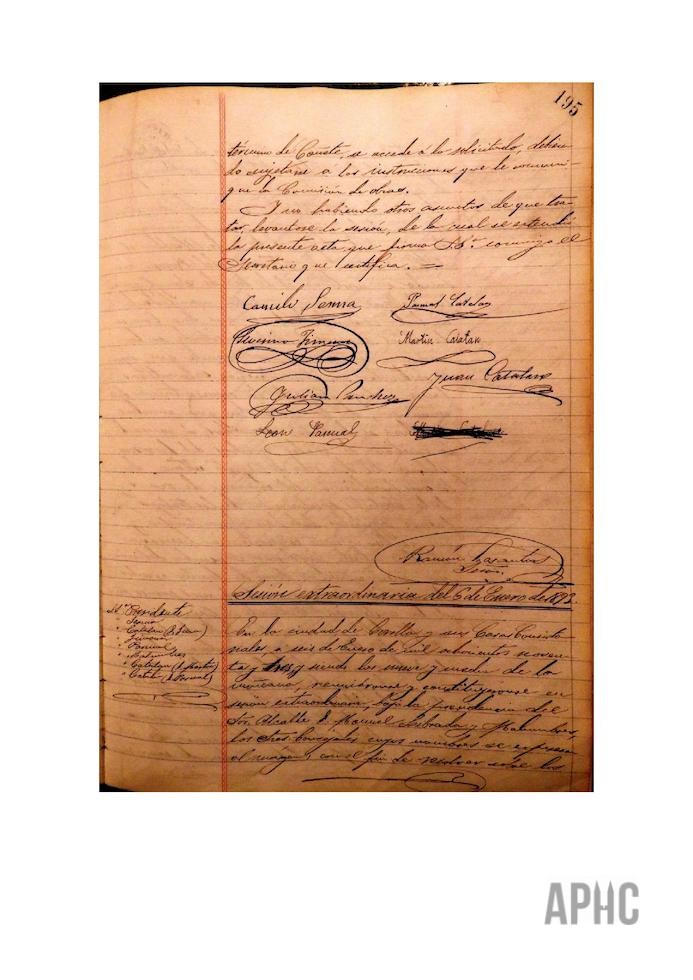 195
término de Canete, se accede a lo solicitado, debien-
do sujetarse a las instrucciones que le comuni-
que la Comisión de obras.
Y no habiendo otros asuntos de que tra-
tar, levantose la sesión, de la cual se extendió
la presente acta que firma S.S. conmigo el
Secretario que certifica. =
Camilo Senna
Pascual Catalan
Jimenez
Martin Catalan
Julian Sanchez
Juan Catalan
Leon Pascual
Ramón
Srio.
Sesión extraordinaria del 6 de Enero de 1893.
Sr. Presidente
" Catalan (D. Juan)
" Jimenez
" Pascual
" Catalan (D. Martin)
" Catalán (D. Pascual)
En la ciudad de Corella y sus Casas Consisto-
riales a seis de Enero de mil ochocientos noven-
ta y tres y siendo las nueve y media de la
mañana, reunieronse y constituyeronse en
sesion extraordinaria, bajo la presidencia del
Sr. Alcalde D. Manuel y Malumbres,
los Sres. Concejales cuyos nombres se expresan
al margen, con el fin de resolver sobre los
APHC